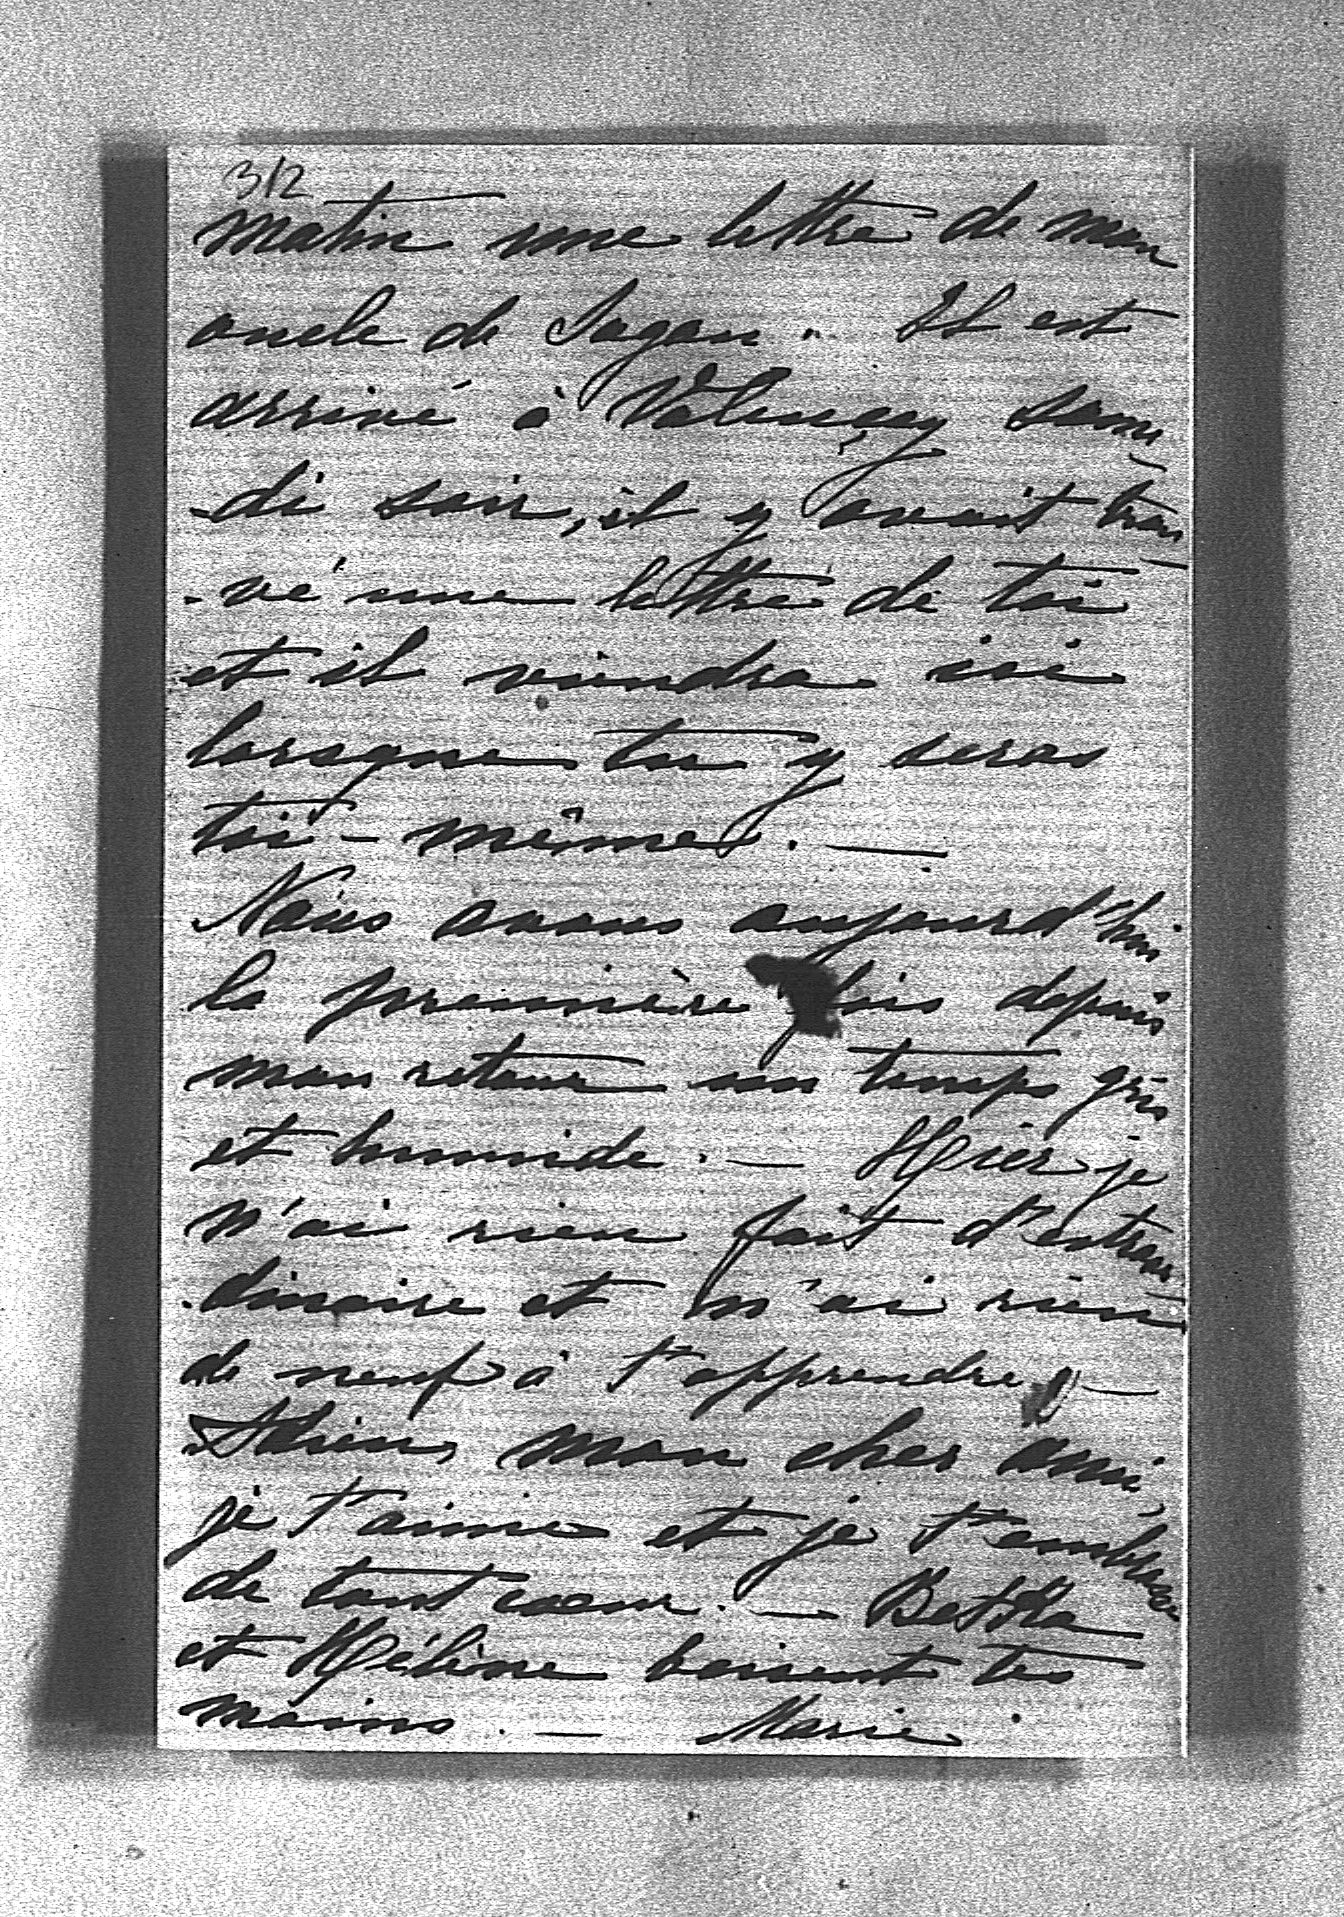 312
matin une lettre de mon
oncle de Sagan. Il est
arrivé à Valençay same
di soir, il y avait trou
-vé une lettre de toi
et il viendra ici
lorsque tu y seras
toi-même. —
Nous avons aujourd'hui
la première fois depuis
mon retour un temps gris
et humide. — Hier je
n'ai rien fait d'extraor
dinaire et n'ai rien
de neuf à t'apprendre. —
Adieu, mon cher ami,
je t'aime et je t'embrasse
de tout coeur. — Betka
et Hélène baisent tes
mains. — Marie.